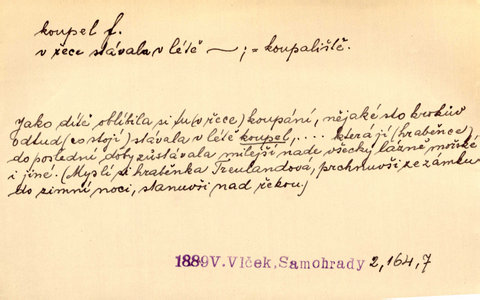 koupel f.
v řece stávala v létě —; = koupaliště.
Jako dítě oblíbila si tu (v řece) koupání, nějaké sto kroků
odtud (co stojí) stávala v létě koupel, .... která jí (hraběnce)
do poslední doby zůstávala milejší nade všecky lázně mořské
i jiné. (Myslí si hraběnka Treulandová, prchnuvši ze zámku
do zimní noci, stanuvši nad řekou)
1889 V. Vlček, Samohrady 2, 164, 7